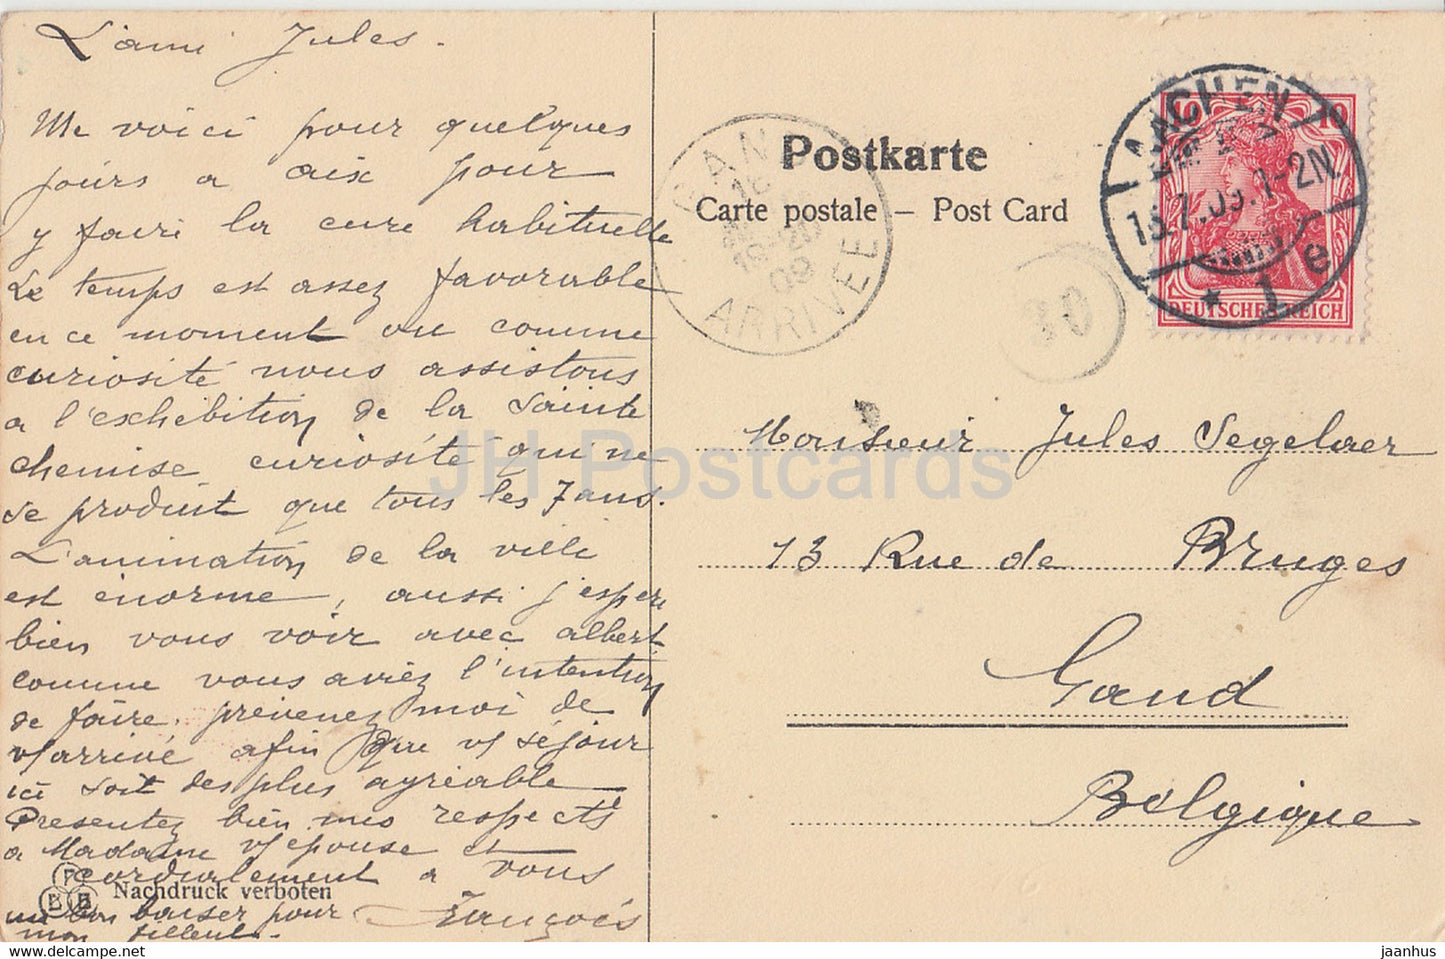 L'ami Jules.
Me voici pour quelques
jours a aix pour
y faire la cure habituelle
Le temps est assez favorable
en ce moment ou comme
curiosité nous assistons
a l'exhibition de la Sainte
chemise curiosité qui ne
se produit que tous les 7 ans.
L'animation de la ville
est énorme, aussi j'espere
bien vous voir avec albert
comme vous aviez l'intention
de faire. prevenez moi de
v/arrivé afin que v/ séjour
ici soit des plus agréable
Presentez bien mes respects
a Madame v/ epouse et
cordialement a vous
un bon baiser pour François
mon filleul.-
Nachdruck verboten
Postkarte
Carte postale – Post Card
GAND
ARRIVEE
09
AACHEN
13.7.09.1-2N.
* 1 e
10 10
DEUTSCHES REICH
Monsieur Jules Segelaer
73 Rue de Bruges
Gand
Belgique
JH Postcards
www.hippostcard.com/store/jaanhus
jaanhus